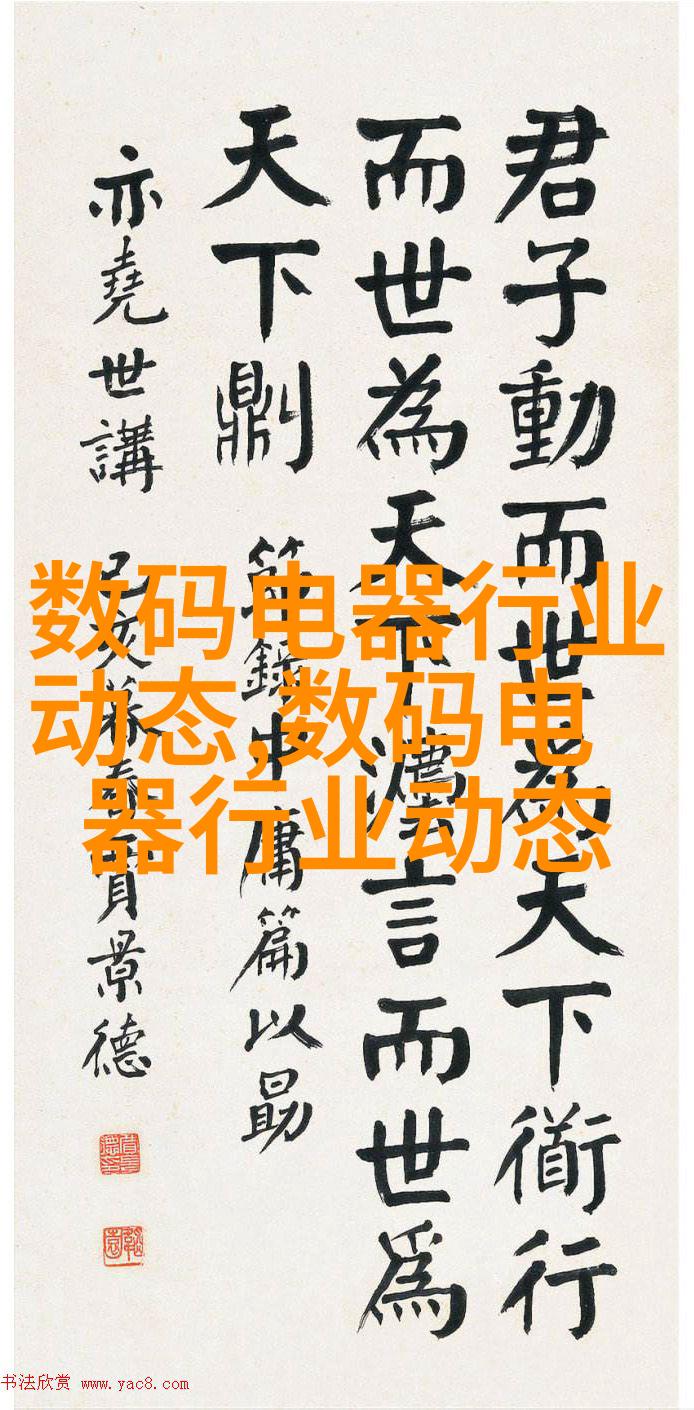 君子動而世為天下衜行
而世為天下灋言而世為
天下則 節錄中庸篇以勗
亦堯世講 己亥暮春賈景德
数码电器行业
动态,数码电
器行业动态
书法欣赏 www.yac8.com